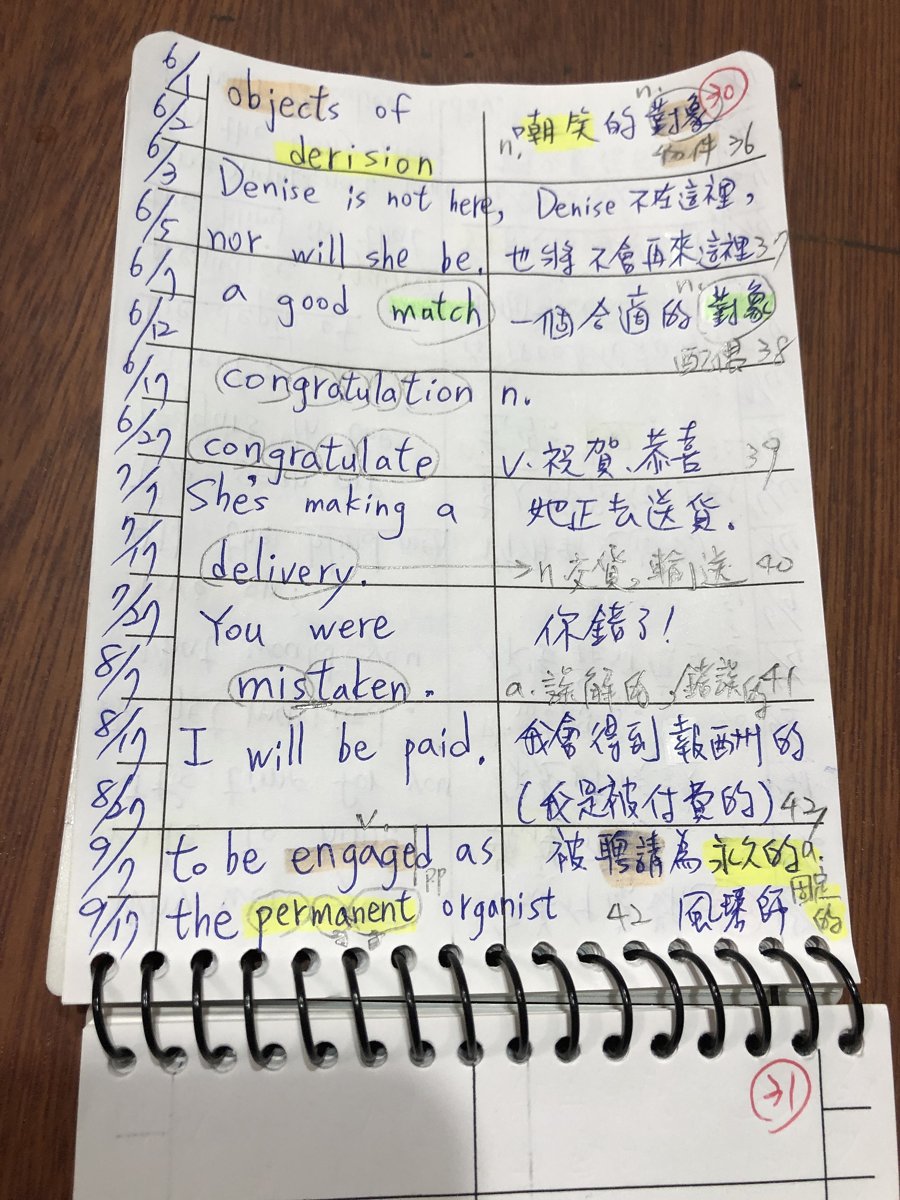 6/1
6/2
6/3
6/5
6/7
6/12
6/17
6/27
7/7
7/17
7/27
8/7
8/17
8/27
9/7
9/17
30
objects of
derision
n.
n. 嘲笑的對象
物件 36
Denise is not here,
nor will she be.
Denise 不在這裡,
也將不會再來這裡 37
a good match
n.
一個合適的對象
配偶 38
congratulation n.
congratulate v. 祝賀、恭喜 39
She's making a
delivery.
她正去送貨.
n 交貨, 輸送 40
You were
mistaken.
你錯了!
a. 誤解的, 錯誤的 41
I will be paid.
我會得到報酬的
(我是被付費的) 42
v.
to be engaged as
pp
the permanent organist
被聘請為永久的 a.
42 風琴師 固定的
31